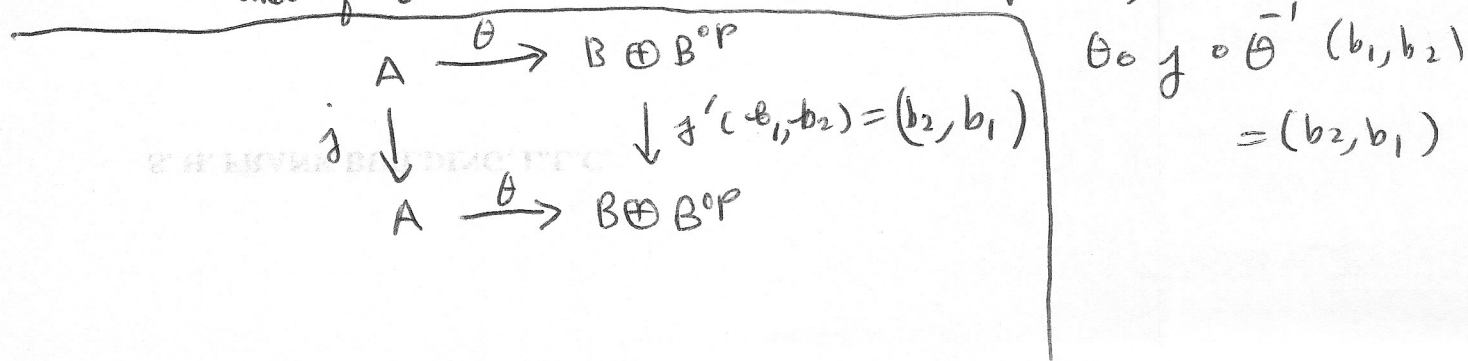 A θ→ B ⊕ B^op
j ↓ ↓ j'(b₁,b₂) = (b₂, b₁)
A θ→ B ⊕ B^op
θ ∘ j ∘ θ⁻¹ (b₁, b₂)
= (b₂, b₁)